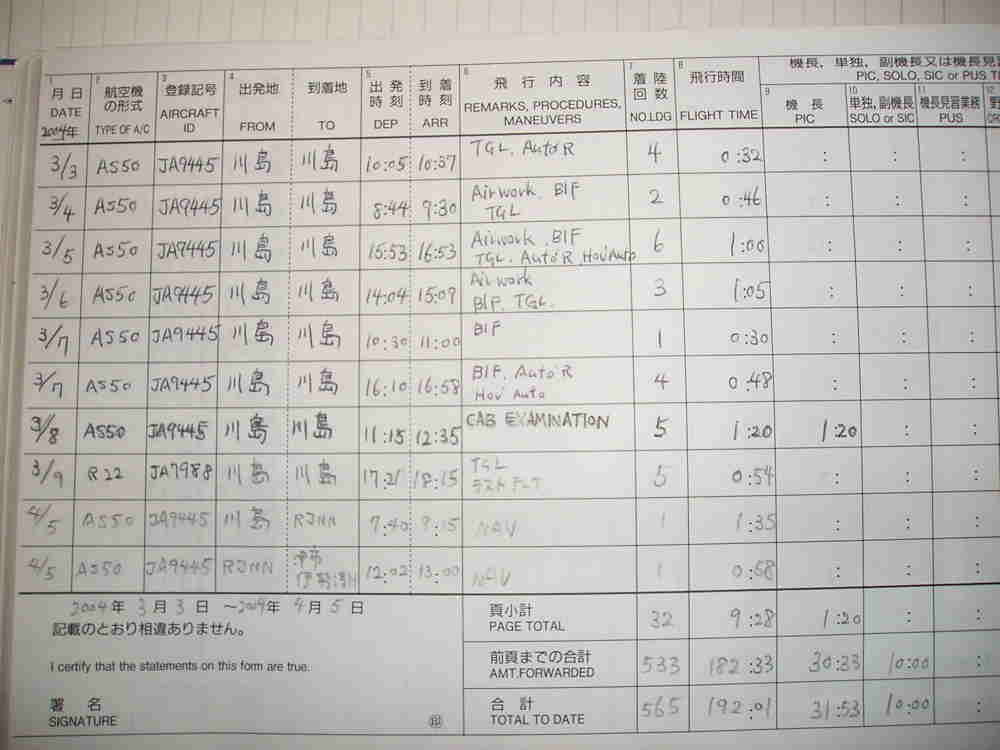 機長, 単独, 副機長又は機長見習
PIC, SOLO, SIC or PUS TI
1 月 日 DATE 2004年
2 航空機の形式 TYPE OF A/C
3 登録記号 AIRCRAFT ID
4 出発地 FROM 到着地 TO
5 出発時刻 DEP 到着時刻 ARR
6 飛 行 内 容 REMARKS, PROCEDURES, MANEUVERS
7 着陸回数 NO.LDG
8 飛行時間 FLIGHT TIME
9 機 長 PIC
10 単独, 副機長 SOLO or SIC
11 機長見習業務 PUS
12
3/3 AS50 JA9445 川島 川島 10:05 10:37 TGL, Auto'R 4 0:32 : : :
3/4 AS50 JA9445 川島 川島 8:44 9:30 Airwork, BIF TGL 2 0:46 : : :
3/5 AS50 JA9445 川島 川島 15:53 16:53 Airwork, BIF TGL, Auto'R, Hov'Auto 6 1:00 : : :
3/6 AS50 JA9445 川島 川島 14:04 15:09 Airwork BIF, TGL 3 1:05 : : :
3/7 AS50 JA9445 川島 川島 10:30 11:00 BIF 1 0:30 : : :
3/7 AS50 JA9445 川島 川島 16:10 16:58 BIF, Auto'R Hov' Auto 4 0:48 : : :
3/8 AS50 JA9445 川島 川島 11:15 12:35 CAB EXAMINATION 5 1:20 1:20 : :
3/9 R22 JA7988 川島 川島 17:21 18:15 TGL 5 0:54 : : :
4/5 AS50 JA9445 川島 RJNN 7:40 9:15 NAV 1 1:35 : : :
4/5 AS50 JA9445 RJNN 12:02 13:00 NAV 1 0:58 : : :
2004年 3月 3日 ～2004年 4月 5日
記載のとおり相違ありません。
I certify that the statements on this form are true.
署 名
SIGNATURE ㊞
頁小計 PAGE TOTAL 32 9:28 1:20 : :
前頁までの合計 AMT.FORWARDED 533 182:33 30:33 10:00 :
合 計 TOTAL TO DATE 565 192:01 31:53 10:00 :